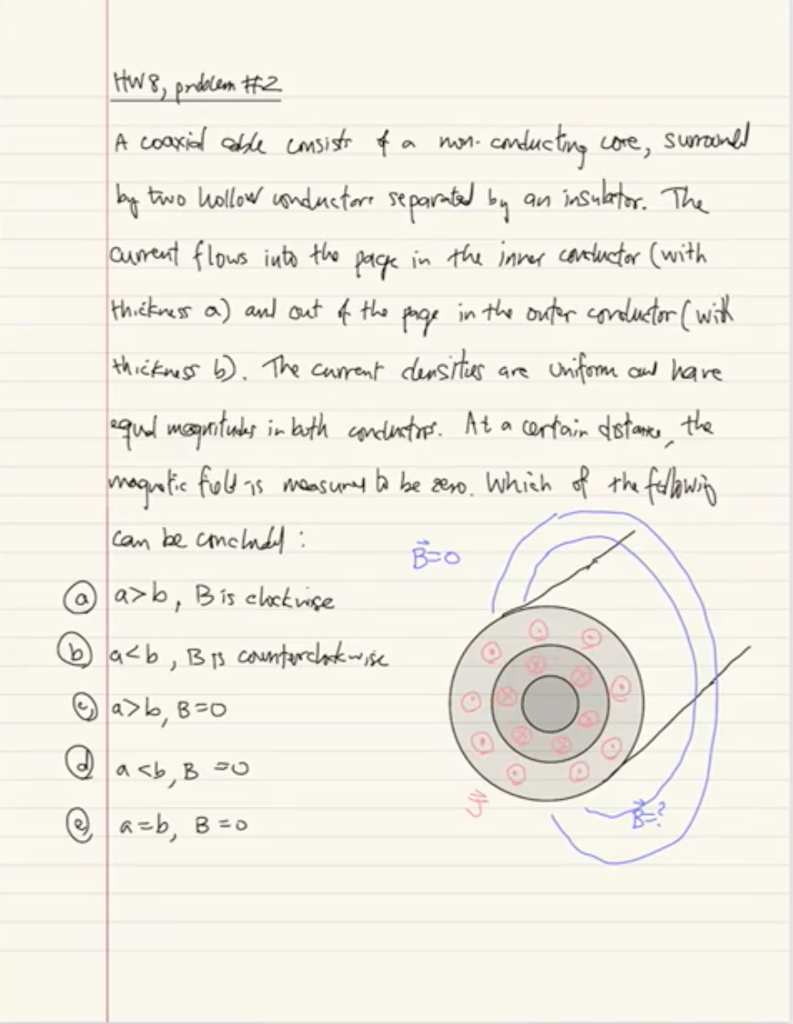 HW 8, problem #2
A coaxial cable consists of a non-conducting core, surround
by two hollow conductors separated by an insulator. The
current flows into the page in the inner conductor (with
thickness a) and out of the page in the outer conductor (with
thickness b). The current densities are uniform and have
equal magnitudes in both conductors. At a certain distance, the
magnetic field is measured to be zero. Which of the following
can be concluded :
B⃗=0
ⓐ a>b, B is clockwise
ⓑ a<b, B is counterclockwise
ⓒ a>b, B=0
ⓓ a<b, B=0
ⓔ a=b, B=0
J⃗
B⃗=?